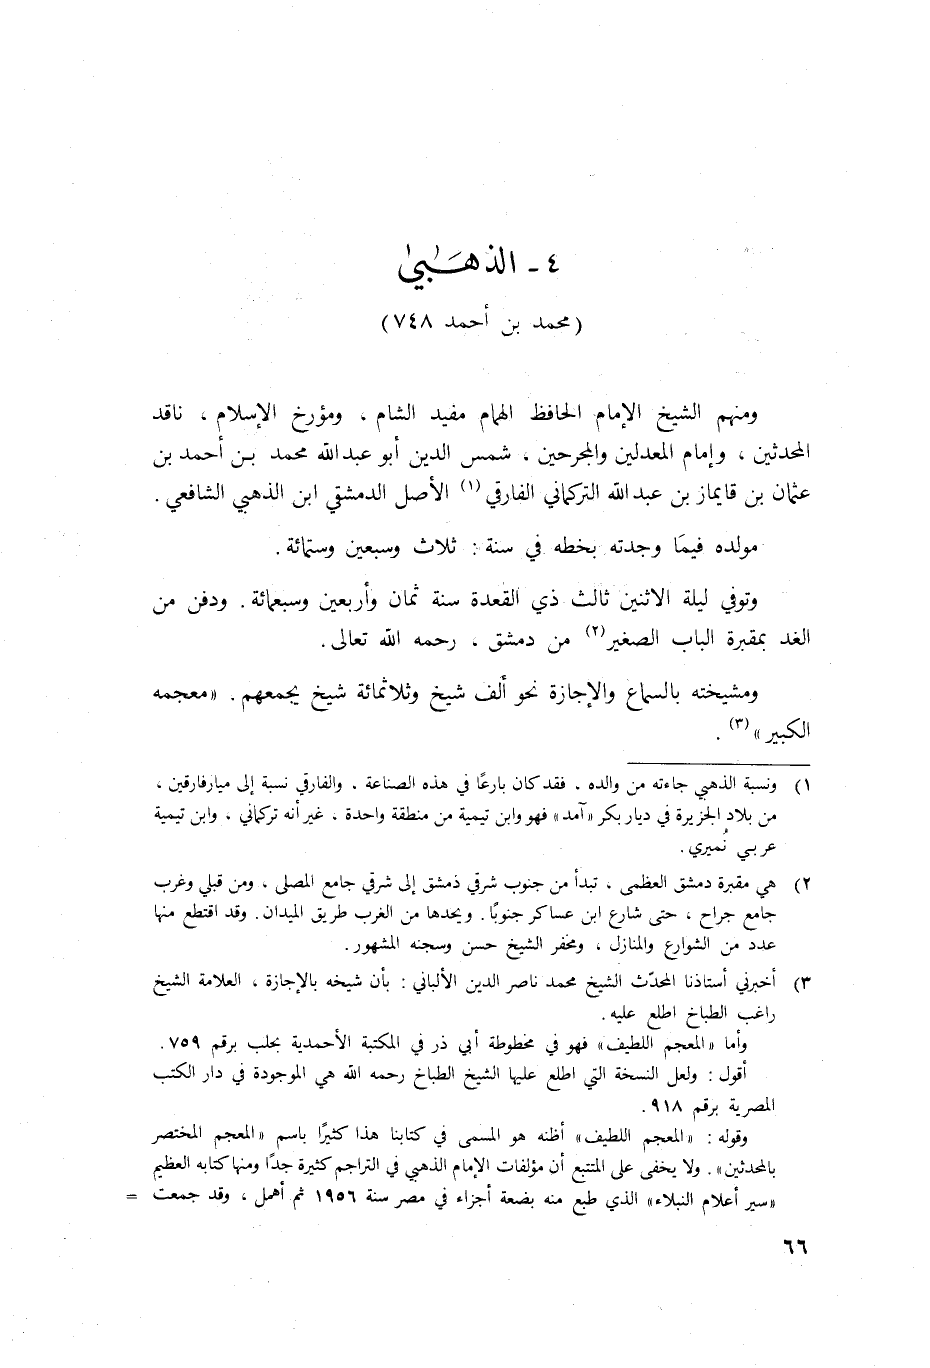 ٤ - الذهبي
(محمد بن أحمد ٧٤٨)
ومنهم الشيخ الإمام الحافظ الهمام مفيد الشام ، ومؤرخ الإسلام ، ناقد
المحدثين ، وإمام المعدلين والمجرحين ، شمس الدين أبو عبدالله محمد بن أحمد بن
عثمان بن قايماز بن عبدالله التركماني الفارقي (١) الأصل الدمشقي ابن الذهبي الشافعي .
مولده فيمَا وجدته بخطه في سنة : ثلاث وسبعين وستمائة .
وتوفي ليلة الاثنين ثالث ذي القعدة سنة ثمان وأربعين وسبعمائة . ودفن من
الغد بمقبرة الباب الصغير (٢) من دمشق ، رحمه الله تعالى .
ومشيخته بالسماع والإجازة نحو ألف شيخ وثلاثمائة شيخ يجمعهم . «معجمه
الكبير» (٣) .
١) ونسبة الذهبي جاءته من والده . فقد كان بارعًا في هذه الصناعة . والفارقي نسبة إلى ميارفارقين ،
من بلاد الجزيرة في ديار بكر «آمد» فهو وابن تيمية من منطقة واحدة ، غير أنه تركماني ، وابن تيمية
عربي نُميري .
٢) هي مقبرة دمشق العظمى ، تبدأ من جنوب شرقي دمشق إلى شرقي جامع المصلى ، ومن قبلي وغرب
جامع جراح ، حتى شارع ابن عساكر جنوبًا . ويحدها من الغرب طريق الميدان . وقد اقتطع منها
عدد من الشوارع والمنازل ، ومخفر الشيخ حسن وسجنه المشهور .
٣) أخبرني أستاذنا المحدّث الشيخ محمد ناصر الدين الألباني : بأن شيخه بالإجازة ، العلامة الشيخ
راغب الطباخ اطلع عليه .
وأما «المعجم اللطيف» فهو في مخطوطة أبي ذر في المكتبة الأحمدية بحلب برقم ٧٥٩ .
أقول : ولعل النسخة التي اطلع عليها الشيخ الطباخ رحمه الله هي الموجودة في دار الكتب
المصرية برقم ٩١٨ .
وقوله : «المعجم اللطيف» أظنه هو المسمى في كتابنا هذا كثيرًا باسم «المعجم المختصر
بالمحدثين» . ولا يخفى على المتتبع أن مؤلفات الإمام الذهبي في التراجم كثيرة جدًا ومنها كتابه العظيم
«سير أعلام النبلاء» الذي طبع منه بضعة أجزاء في مصر سنة ١٩٥٦ ثم أهمل ، وقد جمعت =
٦٦